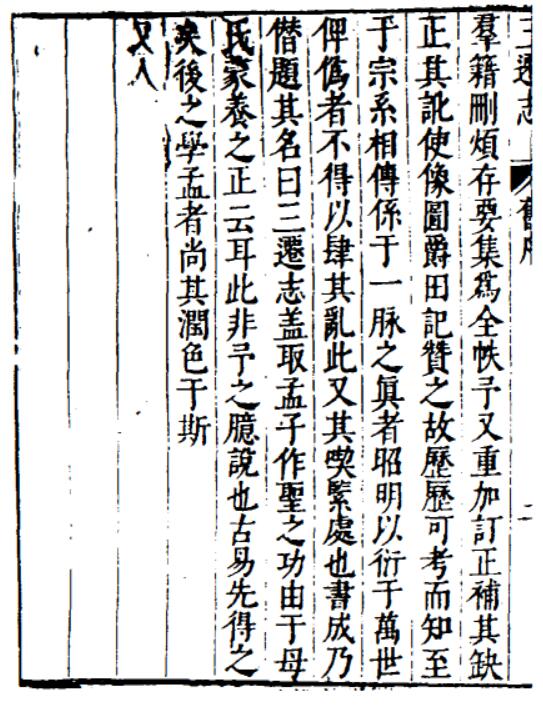 三遷志 舊序 二
羣籍刪煩存要集爲全帙予又重加訂正補其缺
正其訛使像圖爵田記贊之故歷歷可考而知至
于宗系相傳係于一脉之眞者昭明以衍于萬世
俾僞者不得以肆其亂此又其喫緊處也書成乃
僣題其名曰三遷志盖取孟子作聖之功由于母
氏蒙養之正云耳此非予之臆說也古易先得之
矣後之學孟者尚其潤色于斯
又八